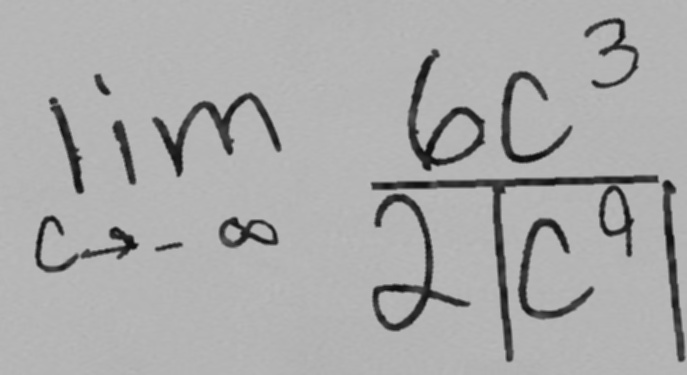 lim c→-∞ 6c³ / 2|c⁹|